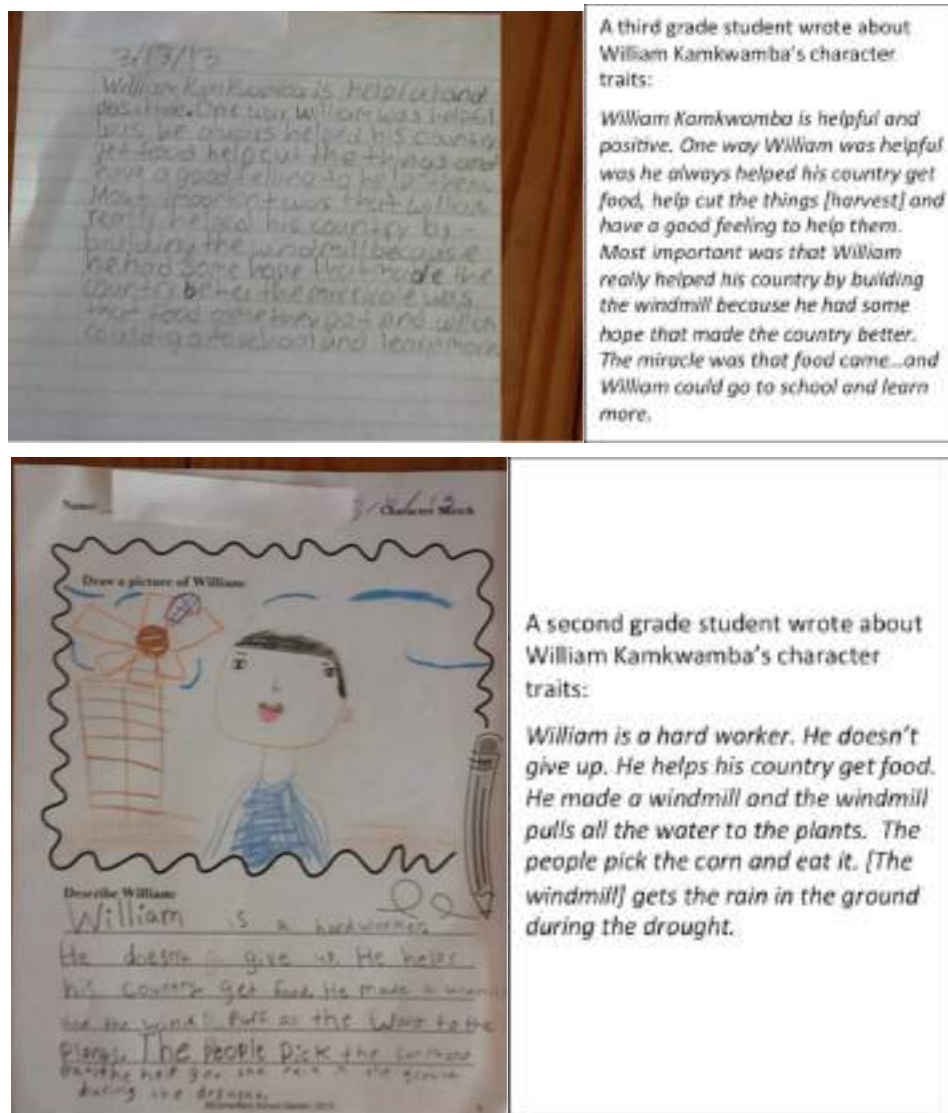 3/13/13
William Kamkwamba is helpful and
positive. One way William was helpful
was he always helped his country
get food help cut the things and
have a good felling to help them.
Most important was that William
really helped his country by
building the windmill because
he had some hope that made the
country better the
that food came they and
could go to school and learn more
A third grade student wrote about
William Kamkwamba's character
traits:
William Kamkwamba is helpful and
positive. One way William was helpful
was he always helped his country get
food, help cut the things [harvest] and
have a good feeling to help them.
Most important was that William
really helped his country by building
the windmill because he had some
hope that made the country better.
The miracle was that food came...and
William could go to school and learn
more.
Name:
Character Sketch
Draw a picture of William:
Describe William:
William is a hard worker.
He doesn't give up. He helps
his country get food. He made a
and the the to the
plants. The people pick the
the rain in the ground
during the
A second grade student wrote about
William Kamkwamba's character
traits:
William is a hard worker. He doesn't
give up. He helps his country get food.
He made a windmill and the windmill
pulls all the water to the plants. The
people pick the corn and eat it. [The
windmill] gets the rain in the ground
during the drought.